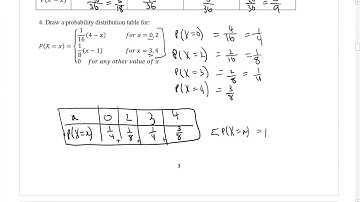 P(X=x) 1/36 3/36=3/18 5/36 7/36 9/36 1/9
4. Draw a probability distribution table for:
P(X = x) = { 1/16 (4 − x) for x = 0, 2
1/8 (x − 1) for x = 3, 4
0 for any other value of x
P(X=0) = 4/16 = 1/4
P(X=2) = 2/16 = 1/8
P(X=3) = 2/8 = 1/4
P(X=4) = 3/8
x 0 2 3 4
P(X=x) 1/4 + 1/8 + 1/4 + 3/8
ΣP(X=x) = 1
3